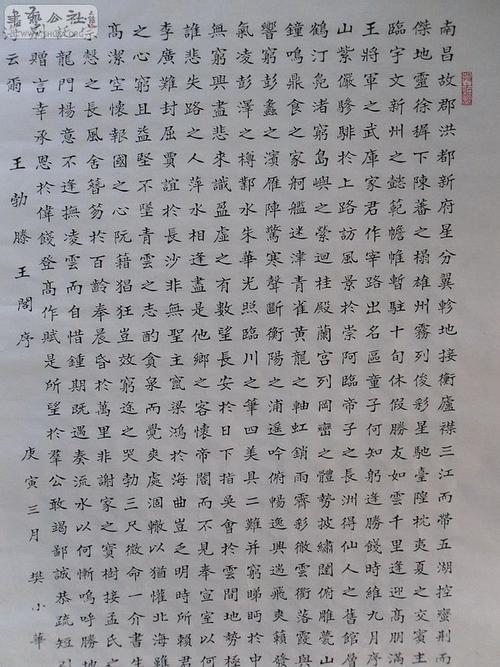 南昌故郡洪都新府星分翼軫地接衡廬襟三江而帶五湖控蠻荊而
傑地靈徐穉下陳蕃之榻雄州霧列俊彩星馳臺隍枕夷夏之交賓
臨宇文新州之懿範襜帷暫駐十旬休假勝友如雲千里逢迎高朋滿
王將軍之武庫家君作宰路出名區童子何知躬逢勝餞時維九月序
山紫儼驂騑於上路訪風景於崇阿臨帝子之長洲得仙人之舊館層
鶴汀鳧渚窮島嶼之縈迴桂殿蘭宮列岡巒之體勢披繡闥俯雕甍山
鐘鳴鼎食之家舸艦迷津青雀黃龍之軸虹銷雨霽彩徹雲衢落霞與
響窮彭蠡之濱雁陣驚寒聲斷衡陽之浦遙吟俯暢逸興遄飛爽籟發
氣凌彭澤之樽鄴水朱華光照臨川之筆四美具二難并窮睇眄於中
無窮興盡悲來識盈虛之有數望長安於日下指吳會於雲間地勢極
誰悲失路之人萍水相逢盡是他鄉之客懷帝閽而不見奉宣室以何
李廣難封屈賈誼於長沙非無聖主竄梁鴻於海曲豈乏明時所賴君
之心窮且益堅不墜青雲之志酌貪泉而覺爽處涸轍以猶懽北海雖
高潔空懷報國之心阮籍猖狂豈效窮途之哭勃三尺微命一介書生
愨之長風舍簪笏於百齡奉晨昏於萬里非謝家之寶樹接孟氏之
龍門楊意不逢撫凌雲而自惜鍾期既遇奏流水以何慚嗚呼勝地
贈言幸承恩於偉餞登高作賦是所望於羣公敢竭鄙誠恭疏短引
云爾
王勃滕王閣序
庚寅三月樊小華
書藝公社